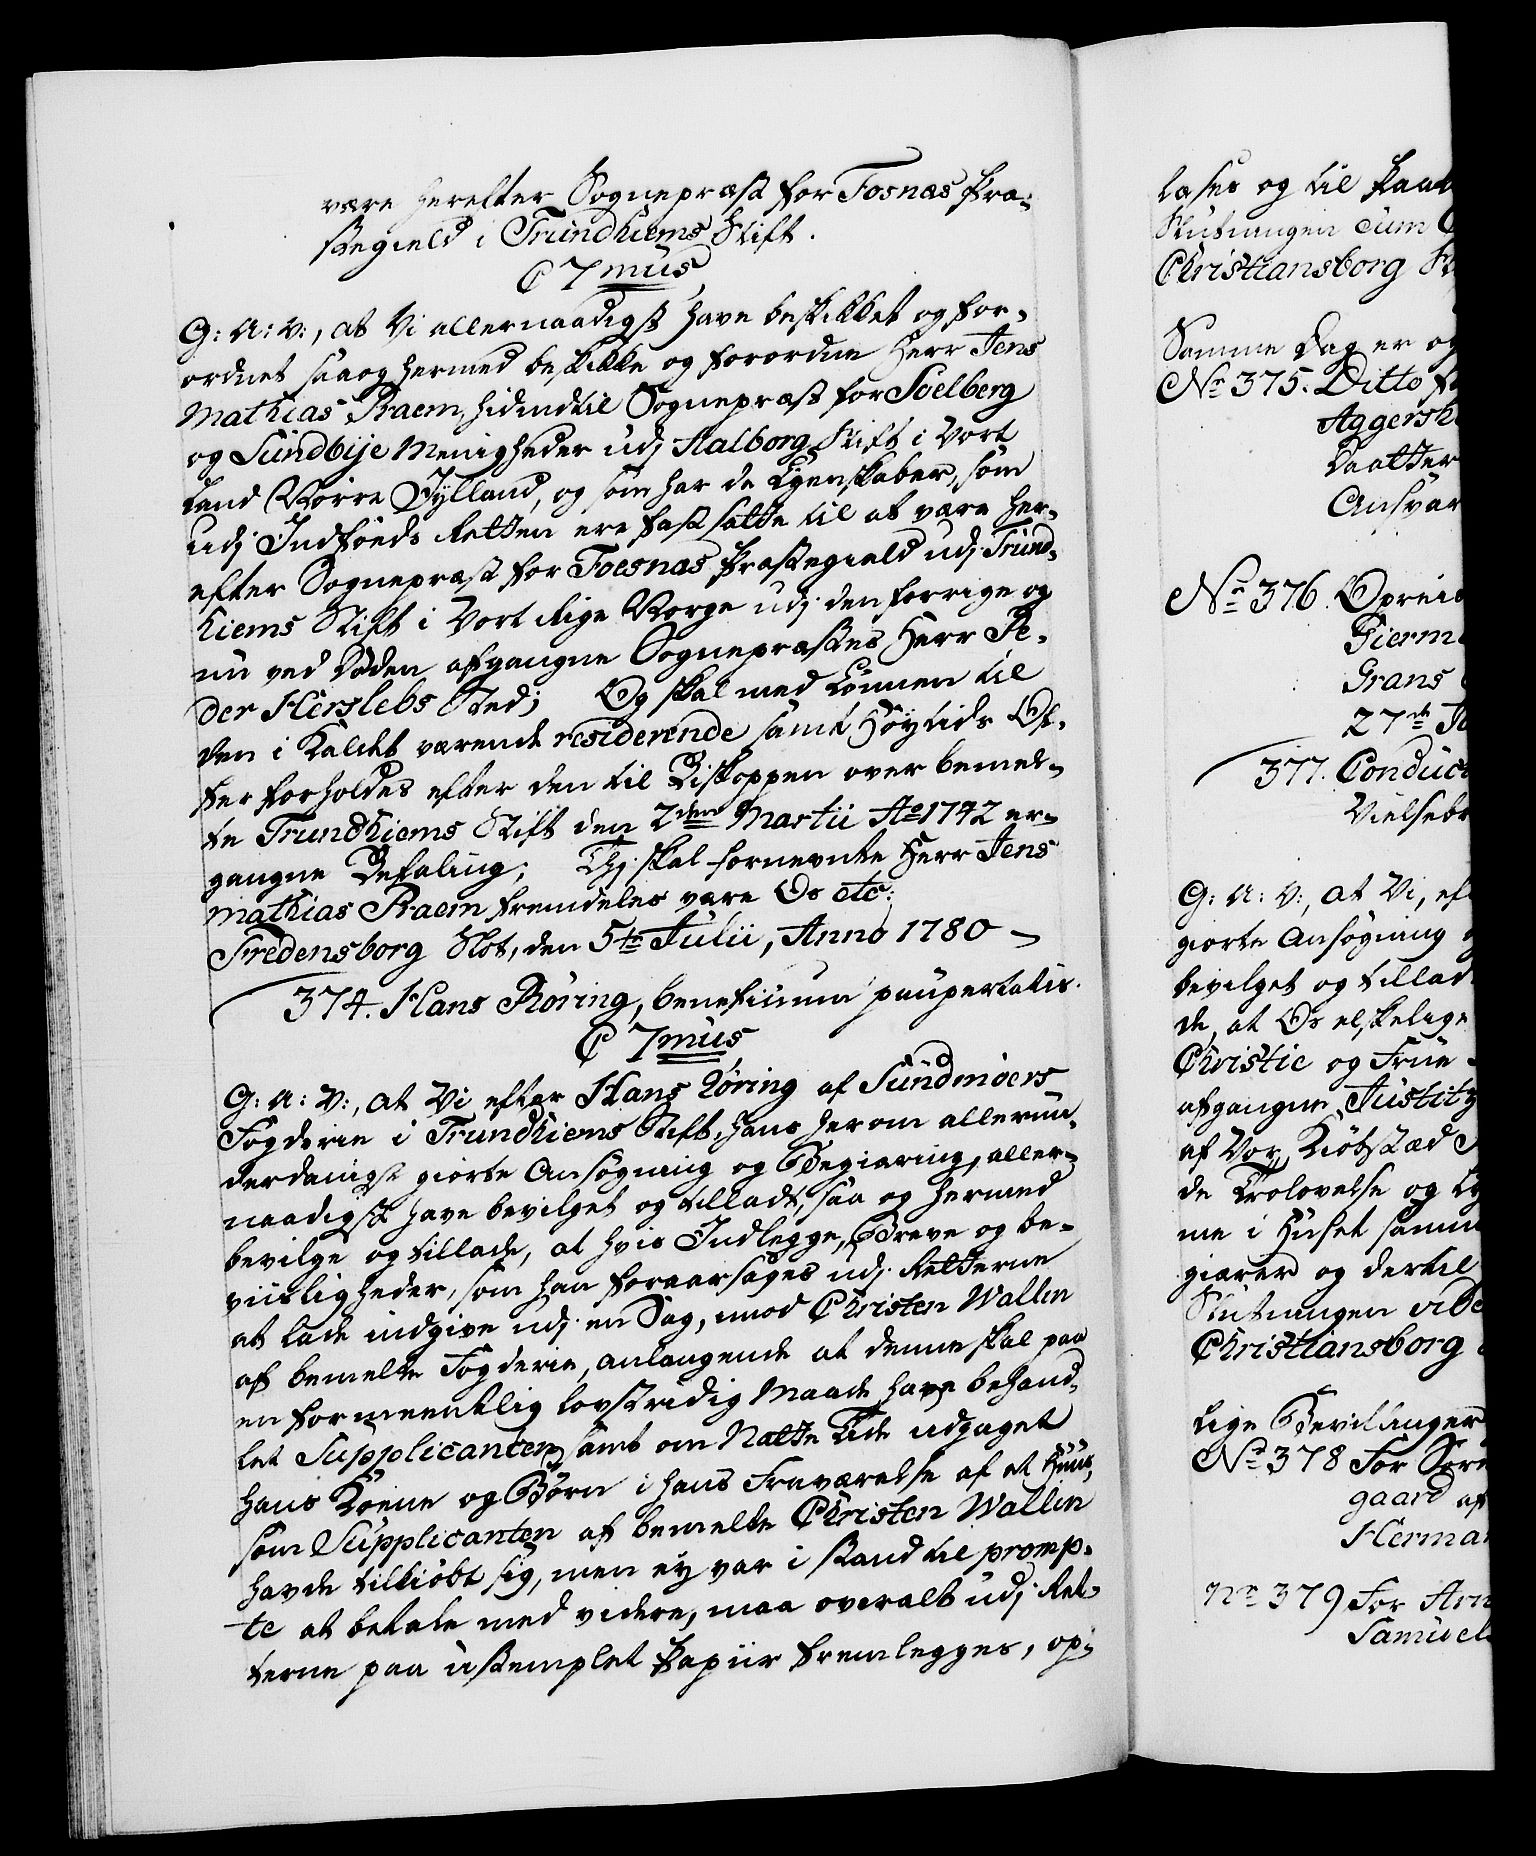 være herefter Sognepræst for Fosnæs Præ-
stegield i Trundhiems Stift.
C 7mus
G: A: V:, at Vi allernaadigst have beskikket og for-
ordnet saa og hermed beskikke og forordne Herr Jens
Mathias Raem, hidindtil Sognepræst for Soelberg
og Sundbije Menigheder udj Aalborg Stift i Vort
Land Nörre Jylland, og som har de Egenskaber, som
udj Indföeds Retten ere fastsatte til at være her-
efter Sognepræst for Foesnæs Præstegield udj Trund-
hiems Stift i Vort Rige Norge udj den forrige og
nu ved Döden afgangne Sognepræstes Herr Pe-
der Herslebs Sted; Og skal med Lönnen til
den i Kaldet værende residerende samt Höytids Of-
fer forholdes efter den til Biskoppen over bemel-
te Trundhiems Stift den 2den Martii Ao 1742 er-
gangne Befaling; Thj skal fornevnte Herr Jens
Mathias Raem fremdeles være Os etc:
Fredensborg Slot, den 5te Julii, Anno 1780
374. Hans Röring, beneficium paupertatis.
C 7mus
G: A: V:, at Vi efter Hans Röring af Sundmöers
Fogderie i Trundhiems Stift, hans herom allerun-
derdanigst giorte Ansögning og Begiæring, aller-
naadigst have bevilget og tilladt, saa og hermed
bevilge og tillade, at hvis Indlegge, Breve og be-
viisligheder, som han foraarsages udj Retterne
at lade indgive udj en Sag, imod Christen Wallen
af bemelte Fogderie, anlangende at denne skal paa
en formeentlig lovstridig Maade have behand-
let Supplicanten, samt om Natte Tide udjaget
hans Koene og Börn i hans Fraværelse af et Huus,
som Supplicanten af bemelte Christen Wallen
havde tilkiöbt sig, men ey var i stand til promp-
te at betale med videre, maa overalt udj Ret-
terne paa ustemplet Papiir fremlegges, op-
læses og til
Slutningen cum
Christiansborg
Samme Dag er
No 375. Ditto
Aggersh
Daatter
Ansvar
No 376. Opreis
Gierm
Grans
27de
377. Conduct
Vielsebr
G: A: V:, at Vi,
giorte Ansögning
bevilget og tillad
de, at Os elskelige
Christie og Frue
afgangne Justitz
af Vor Kiöbstæd
de Trolovelse og
me i Huset
giærer og dertil
Slutningen
Christiansborg
lige Bevillinger
No 378 For Sör
gaard af
Herma
No 379 For Arn
Samuel